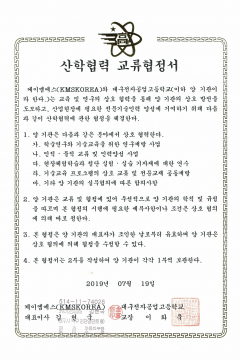 산학협력 교류협정서
케이엠에스(KMSKOREA)와 대구전자공업고등학교(이하 양 기관이
라 한다.)는 교육 및 연구의 상호 협력을 통해 양 기관의 상호 발전을
도모하고, 산업현장에 필요한 전문기술인력 양성에 기여하기 위해 다음
과 같이 산학협력에 관한 협정을 체결한다.
1. 양 기관은 다음과 같은 분야에서 상호 협력한다.
가. 학술연구와 기술교류를 위한 연구개발 사업
나. 인적 · 물적 교류 및 인력양성 사업
다. 현장체험학습과 현장 실험 · 실습 기자재에 대한 연수
라. 기술교육 프로그램의 상호 교류 및 전문교재 공동개발
마. 기타 양 기관의 실무협의에 따른 합의사항
2. 양 기관은 교류 및 협정에 있어 우선적으로 양 기관의 학칙 및 규정
을 따르며 본 협정의 시행에 필요한 세부사항이나 조건은 상호 협의
에 의해 따로 정한다.
3. 본 협정은 양 기관의 대표자가 조인한 날로부터 유효하며 양 기관은
상호 협의에 의해 협정을 수정할 수 있다.
4. 본 협정서는 2부를 작성하여 양 기관이 각각 1부씩 보관한다.
2019년 07월 19일
514-11-74026
케이엠에스(KMSKOREA) 대구전자공업고등학교
대표이사 김 교장 이